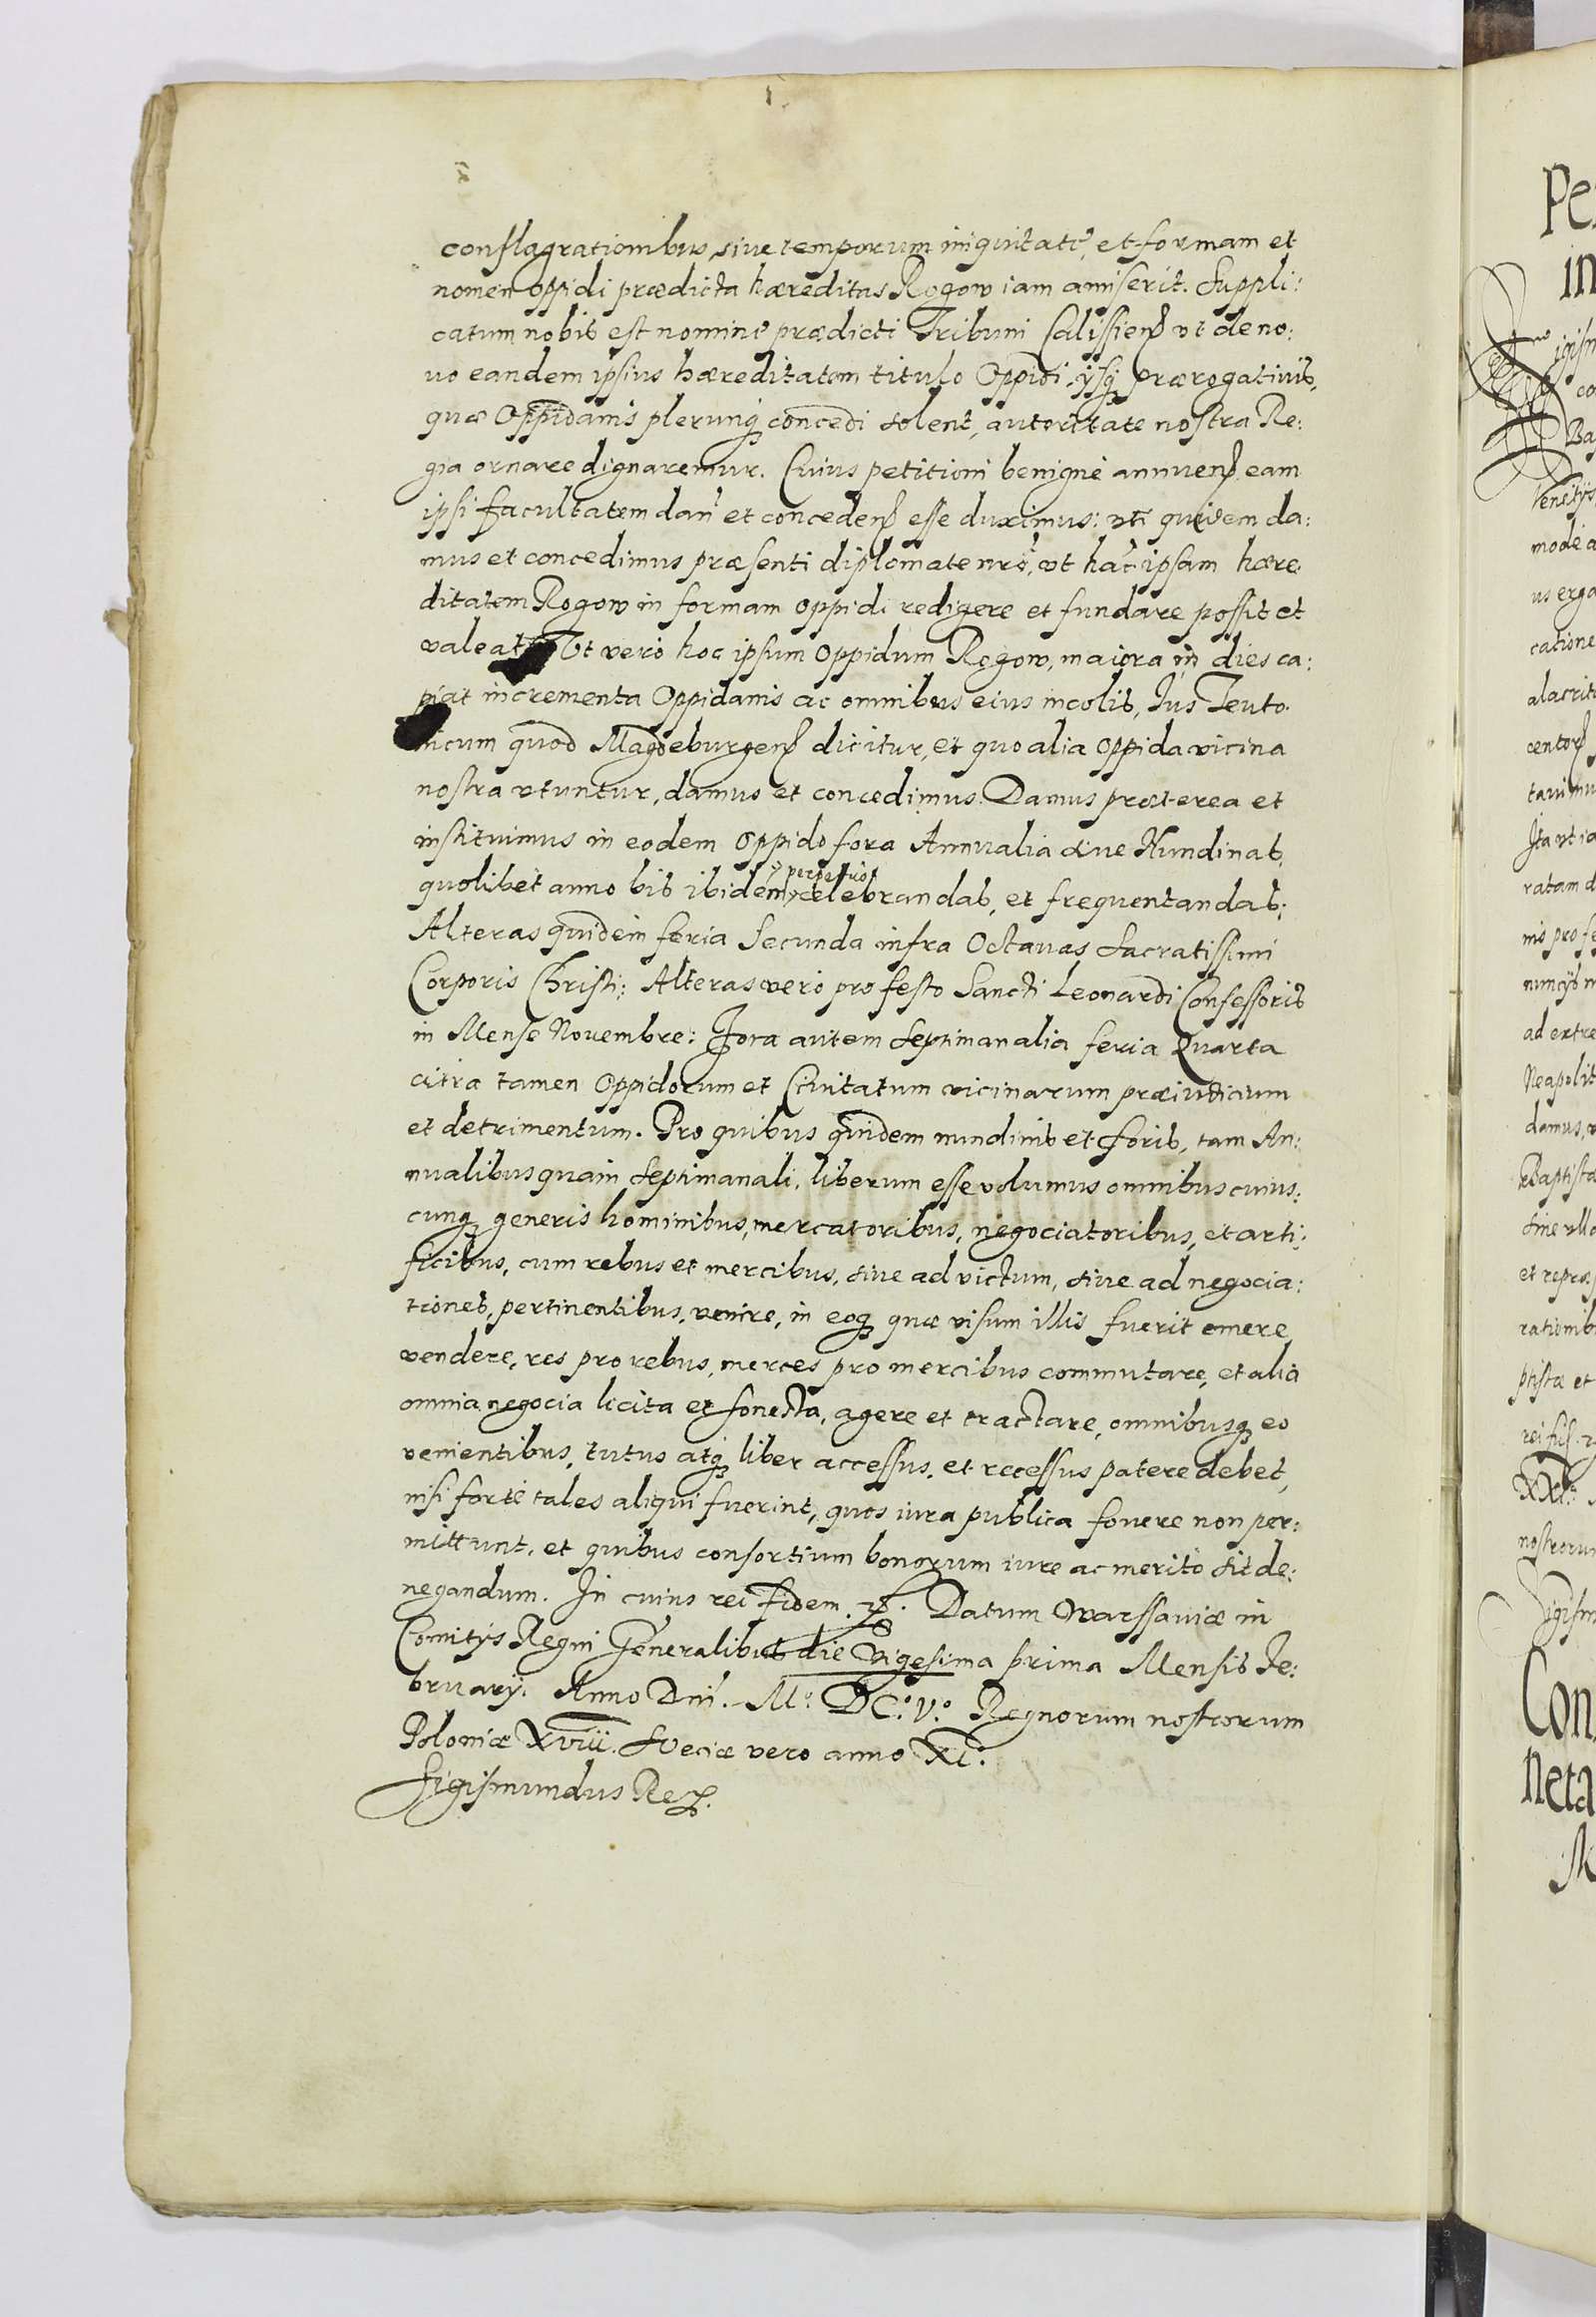 conflagrationibus, siue temporum iniquitate, et formam et
nomen oppidi prædicta hæreditas Rogow iam amiserit. Suppli:
catum nobis est nomine prædicti Tribuni Calissien̄ vt de no:
uo eandem ipsius hæreditatem titulo Oppidi ijsq prærogatiuis,
quæ Oppidanis plerunq concedi solent, autoritate nostra Re:
gia ornare dignaremur. Cuius petitioni benignè annuen̄ eam
ipsi facultatem dan̄ et conceden̄ esse duximus: vti quidem da:
mus et concedimus præsenti diplomate nr̄o, vt hāc ipsam hære
ditatem Rogow in formam oppidi redigere et fundare possit et
valeat. Vt vero hoc ipsum Oppidum Rogow, maiora in dies ca:
piat incrementa Oppidanis ac omnibus eius incolis, Ius Teuto
nicum quod Magdeburgen̄ dicitur, et quo alia oppida vicina
nostra vtuntur, damus et concedimus. Damus præterea et
instituimus in eodem oppido fora Annualia siue Nundinas,
quolibet anno bis ibidem perpetuo celebrandas, et frequentandas;
Alteras quidem feria Secunda infra Octauas Sacratissimi
Corporis Christi: Alteras vero pro festo Sancti Leonardi Confessoris
in Mense Nouembre: Fora autem Septimanalia feria Quarta
citra tamen Oppidorum et Ciuitatum vicinarum præiudicium
et detrimentum. Pro quibus quidem nundinis et foris, tam An:
nualibus quam Septimanali, liberum esse volumus omnibus cuius:
cunq generis hominibus, mercatoribus, negociatoribus, et arti:
ficibus, cum rebus et mercibus, siue ad victum, siue ad negocia:
tiones, pertinentibus, venire, in eoq quæ visum illis fuerit emere,
vendere, res pro rebus, merces pro mercibus commutare, et alia
omnia negocia licita et honesta, agere et tractare, omnibusq eo
venientibus, tutus atq liber accessus, et recessus patere debet,
nisi forte tales aliqui fuerint, quos iura publica fouere non per:
mittunt, et quibus consortium bonorum iure ac merito sit de:
negandum. In cuius rei fidem. Datum Warssauiæ in
Comitijs Regni Generalibus die Vigesima prima Mensis Fe:
bruarij. Anno Dn̄i. M.o DC.o V.o Regnorum nostrorum
Poloniæ XVIII. Sueciæ vero anno XI.o
Sigismundus Rex.